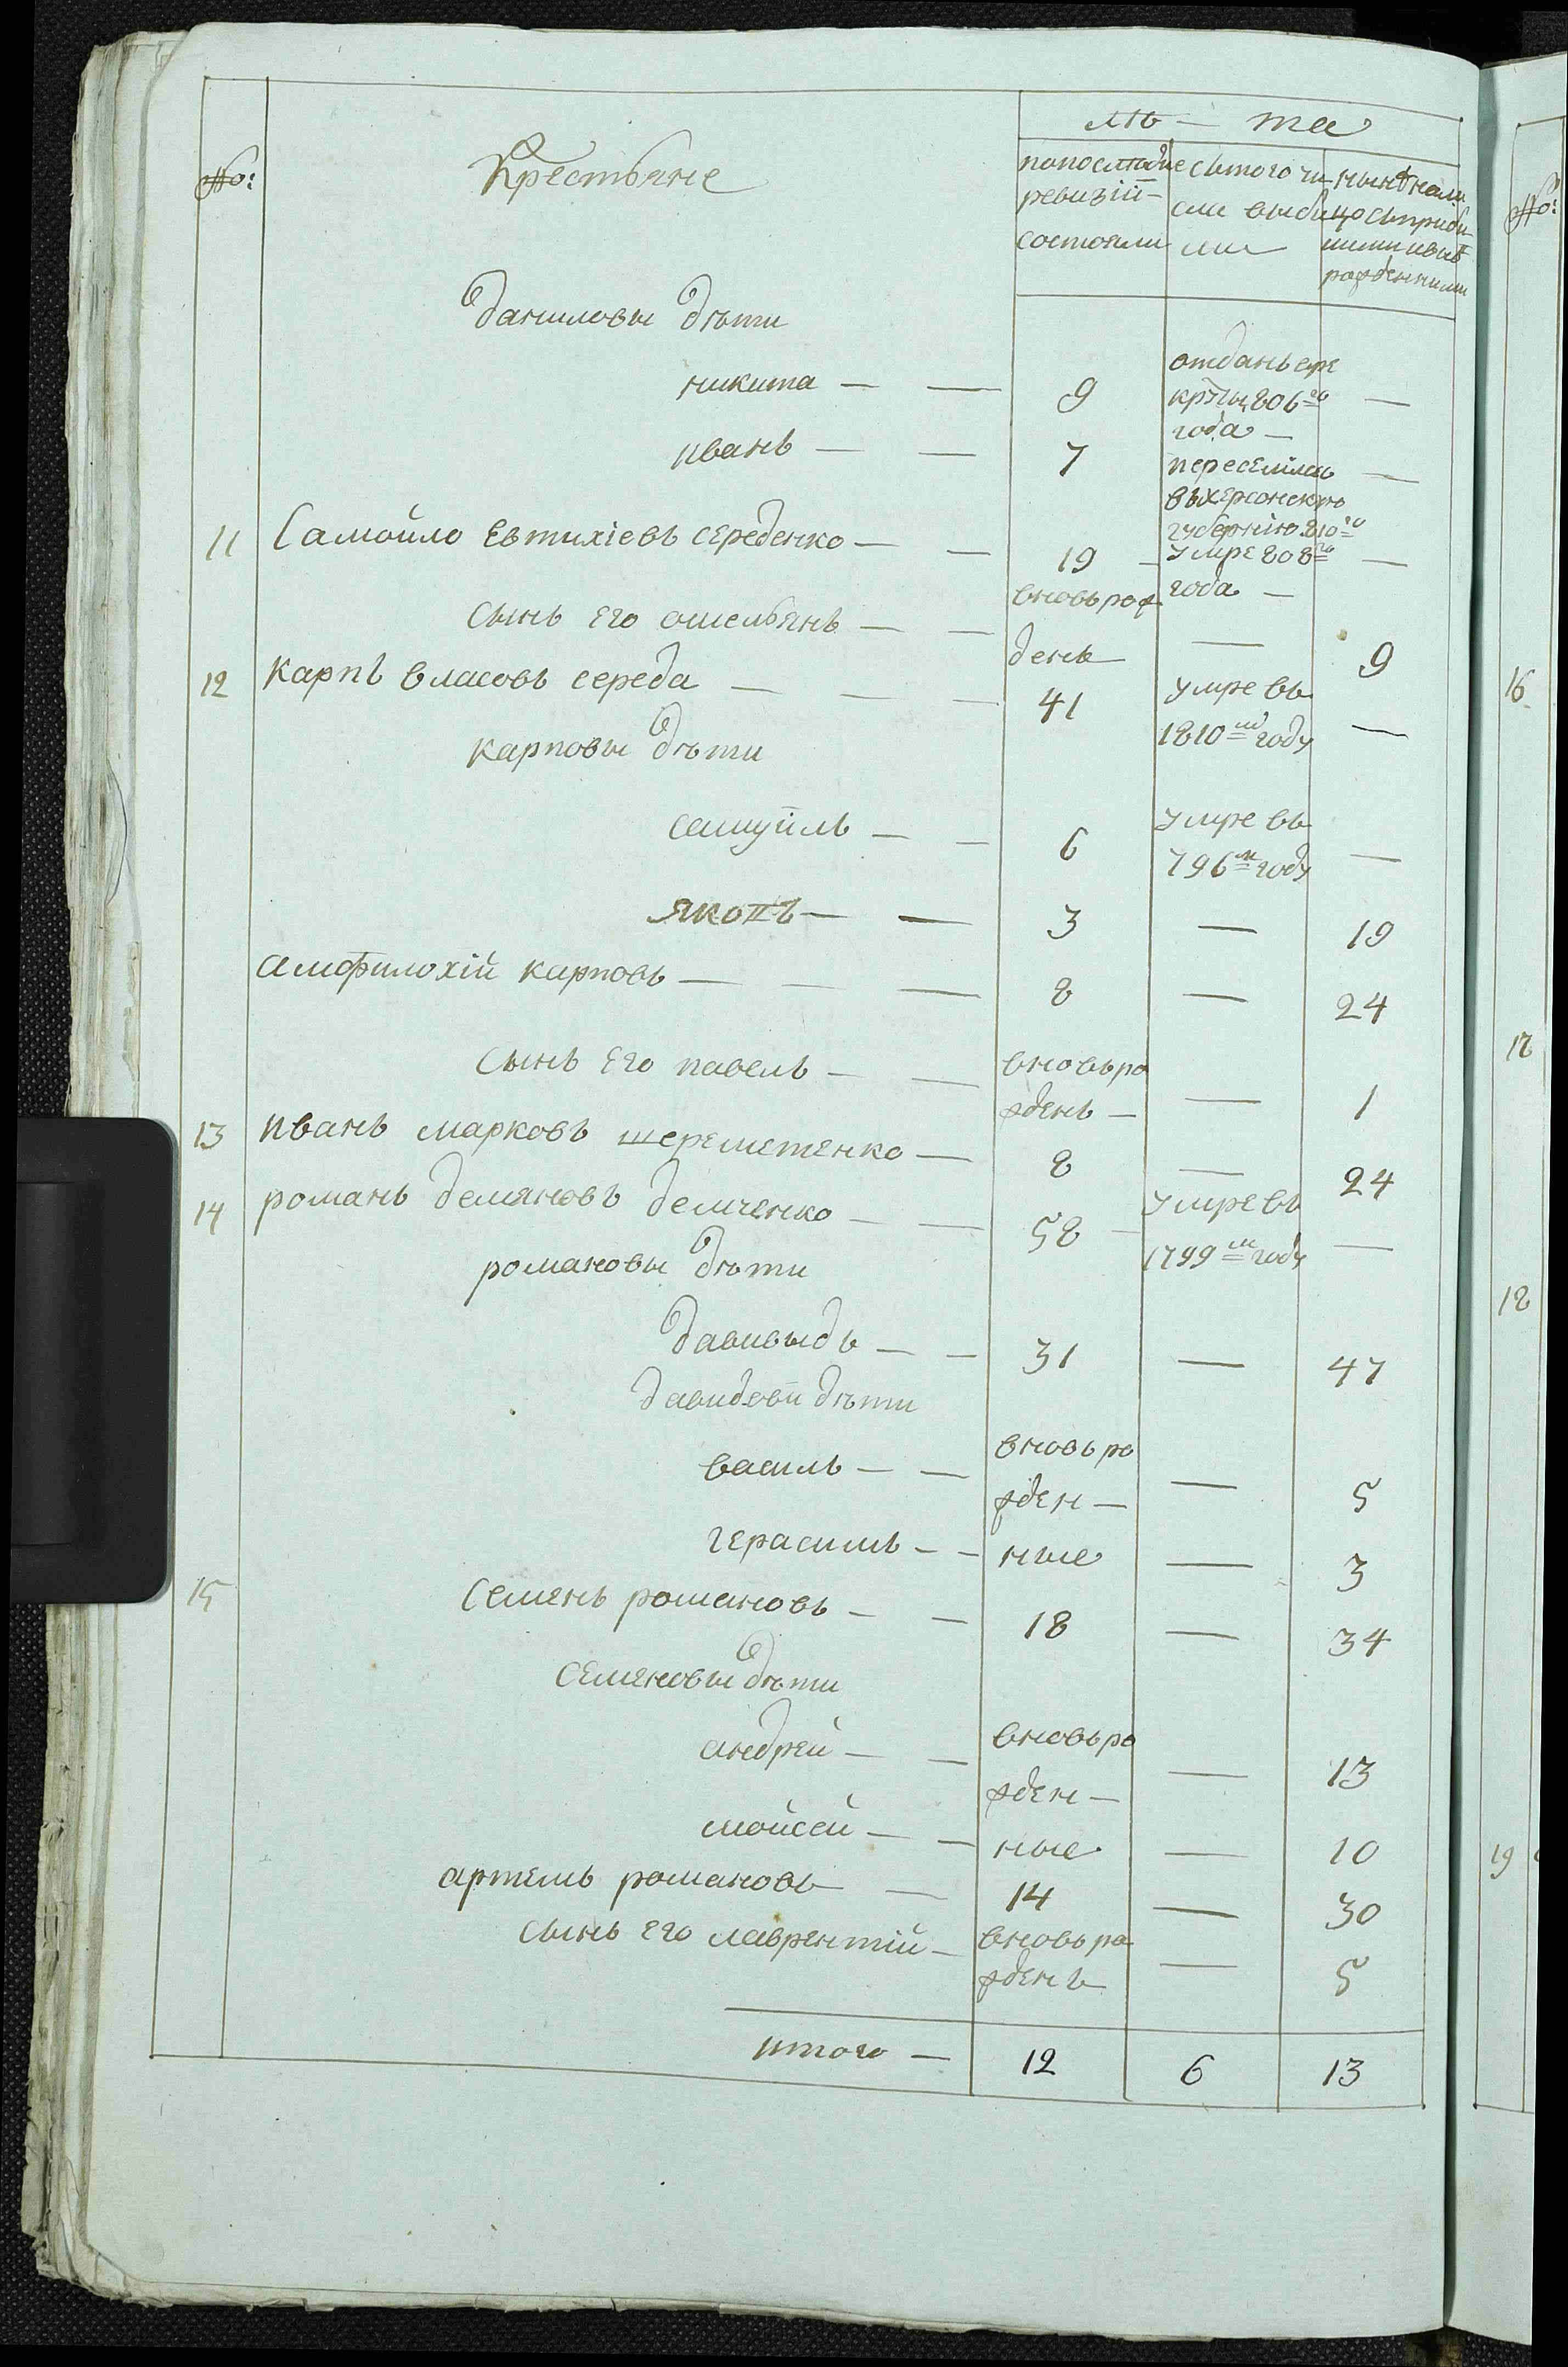 лѣ — та
№:
Крестьяне
попоследне ревизій состояли
съ того числа выбыли
нынѣ налицо съ прибылыми и вновь рожденными
№:
Даниловы дѣти
никита — — 9 отданъ в рекруты 806го года — —
иванъ — — 7 переселился въ херсонскую губернію 810го —
11 Самойло Евтихіевъ середенко — — 19 — умре 808го года — —
Сынъ Его омельянъ — — вновь рожденъ — 9
12 карпъ власовъ середа — — — 41 умре въ 1810м году —
карповы дѣти
самуйлъ — — 6 умре въ 796м году —
якопъ — — 3 — 19
амфилохій карповъ — — — 8 — 24
Сынъ Его павелъ — — вновь рожденъ — — 1
13 иванъ марковъ шереметенко — 8 — 24
14 романъ демяновъ демченко — — 58 — умре въ 1799м году —
романовы дѣти
давивыдъ — — 31 — 47
давидови дѣти
василь — — вновь ро — 5
жден —
герасимъ — — ные — 3
15 Семенъ романовъ — — 18 — 34
Семеновы дѣти
андрей — — вновь ро — 13
жден —
мойсей — — ные — 10
артемъ романовъ — 14 — 30
сынъ его лаврентій — вновь рожденъ — 5
итого — 12 6 13
16
17
18
19